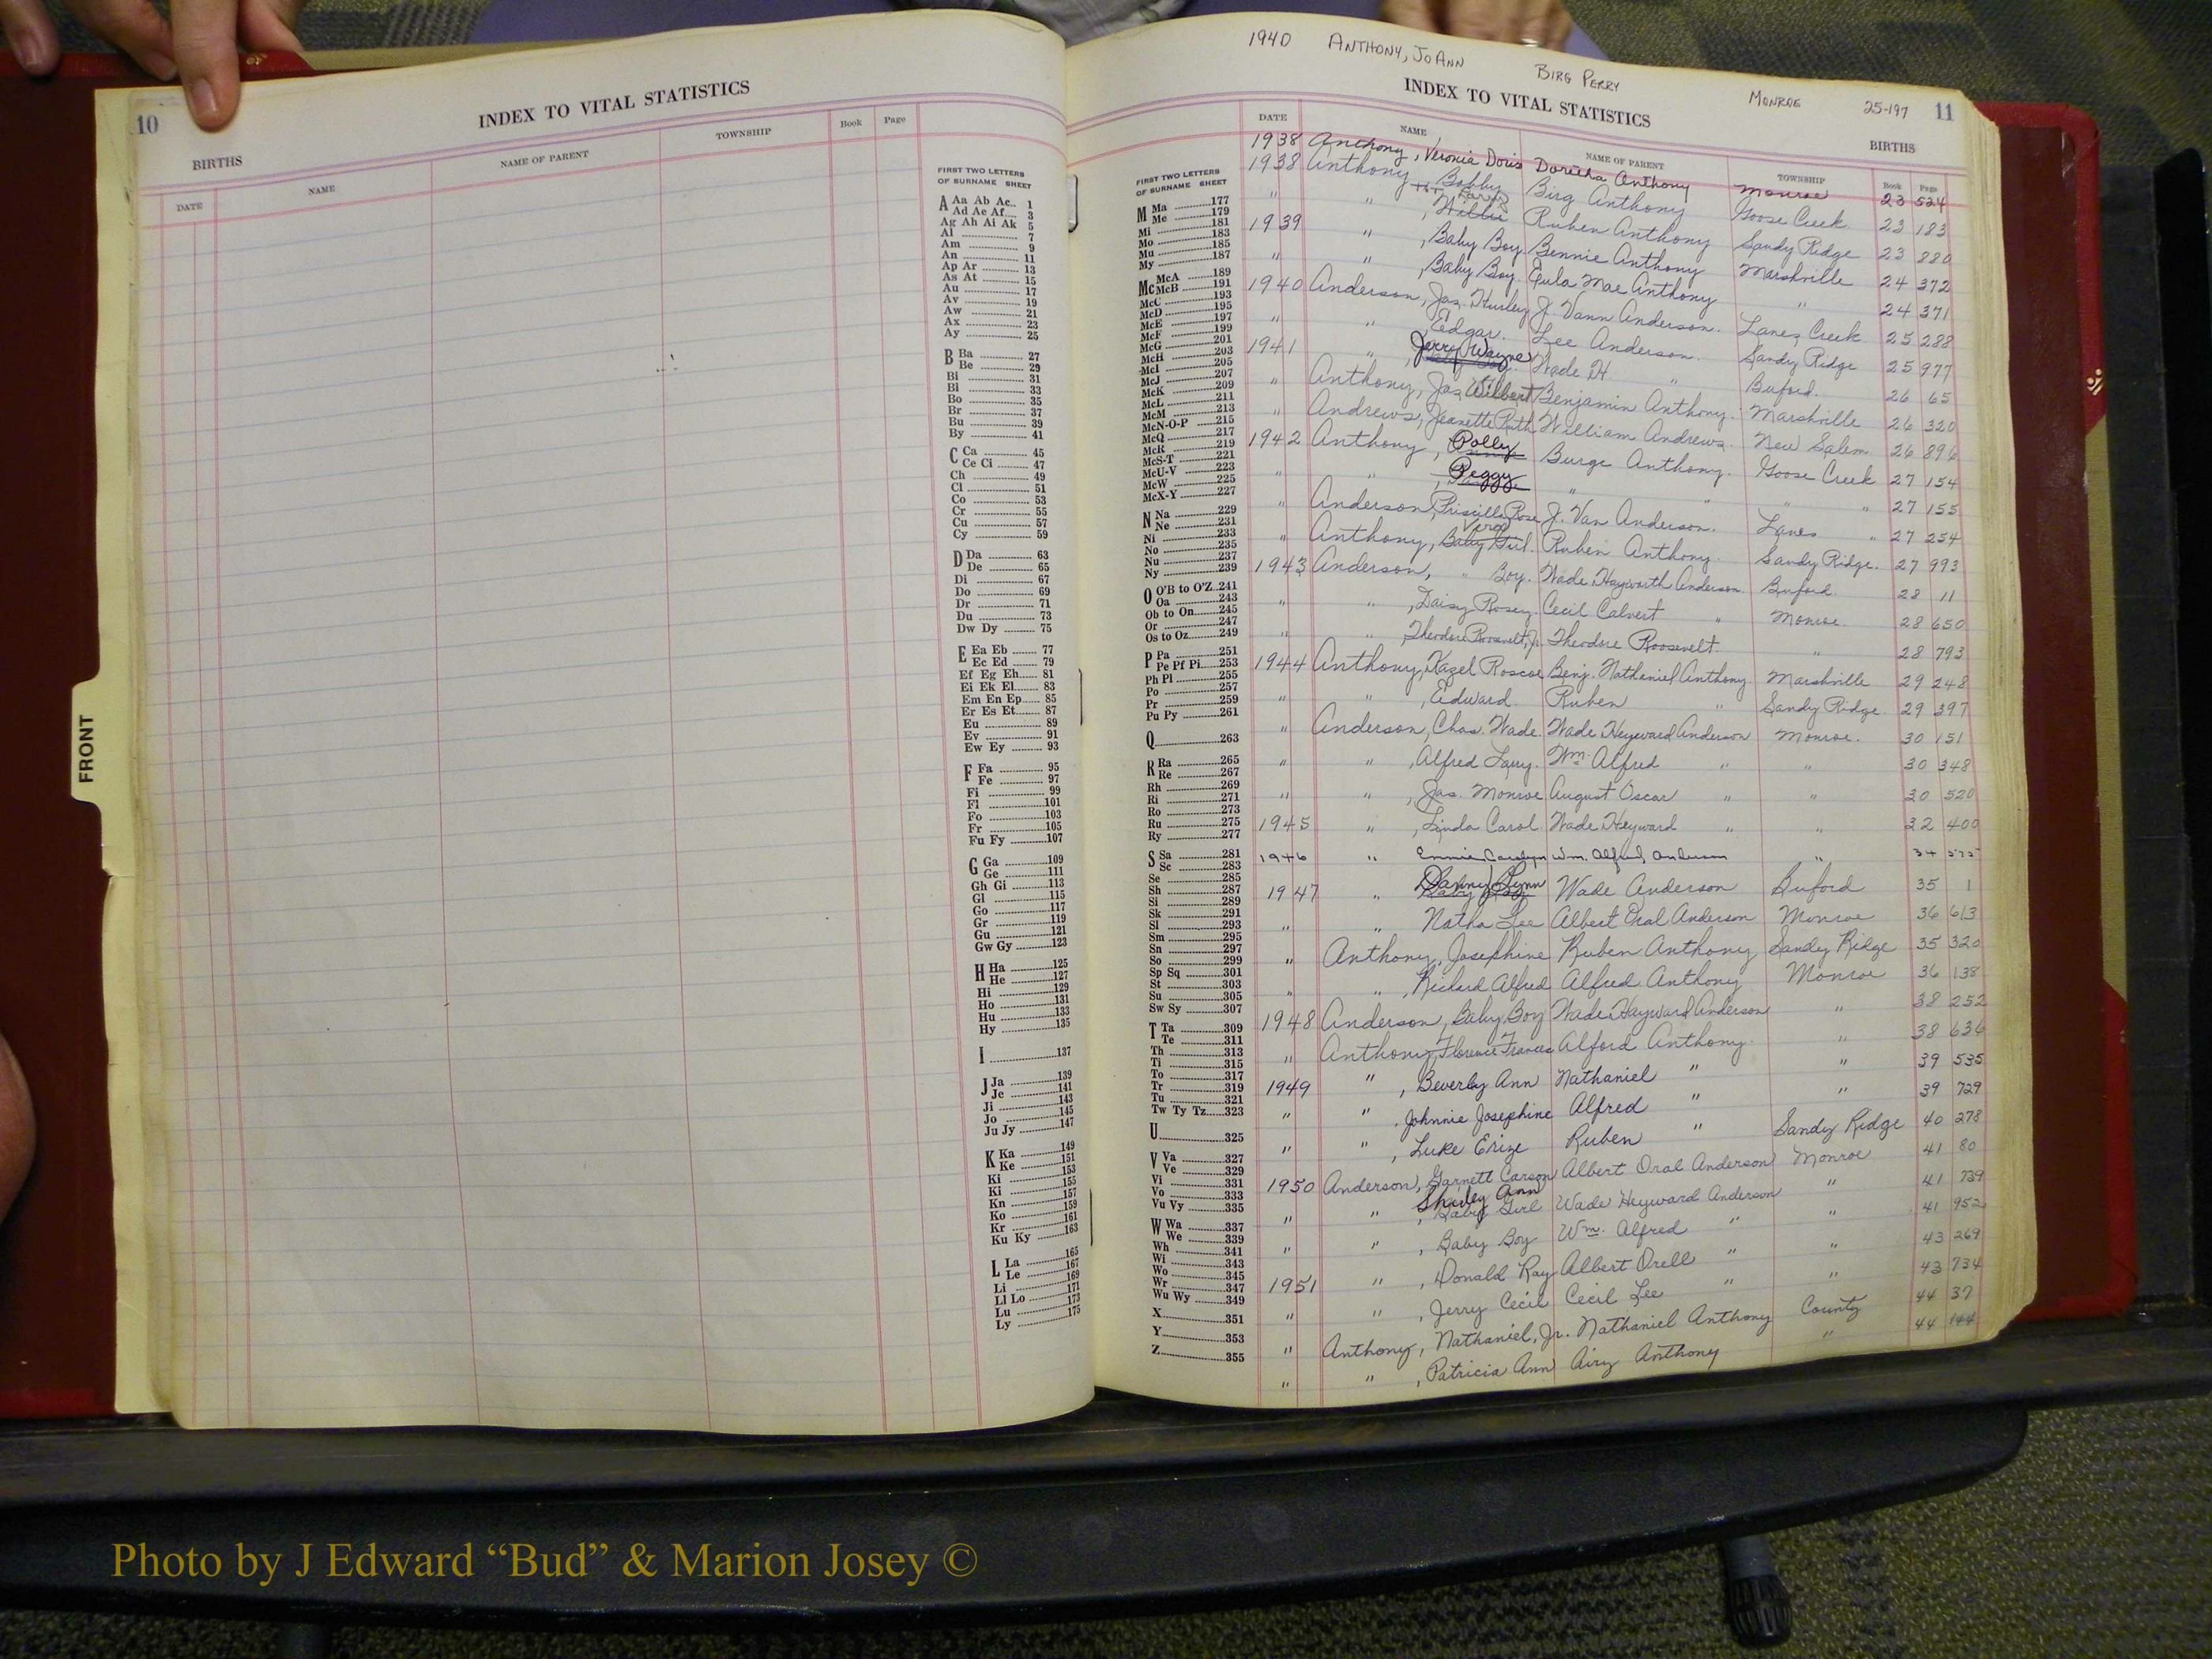 10
INDEX TO VITAL STATISTICS
BIRTHS
DATE NAME NAME OF PARENT TOWNSHIP Book Page
FIRST TWO LETTERS
OF SURNAME SHEET
A Aa Ab Ac 1
Ad Ae Af 3
Ag Ah Ai Ak 5
Al 7
Am 9
An 11
Ap Ar 13
As At 15
Au 17
Av 19
Aw 21
Ax 23
Ay 25
B Ba 27
Be 29
Bi 31
Bi 33
Bo 35
Br 37
Bu 39
By 41
C Ca 45
Ce Ci 47
Ch 49
Cl 51
Co 53
Cr 55
Cu 57
Cy 59
D Da 63
De 65
Di 67
Do 69
Dr 71
Du 73
Dw Dy 75
E Ea Eb 77
Ec Ed 79
Ef Eg Eh 81
Ei Ek El 83
Em En Ep 85
Er Es Et 87
Eu 89
Ev 91
Ew Ey 93
F Fa 95
Fe 97
Fi 99
Fl 101
Fo 103
Fr 105
Fu Fy 107
G Ga 109
Ge 111
Gh Gi 113
Gl 115
Go 117
Gr 119
Gu 121
Gw Gy 123
H Ha 125
He 127
Hi 129
Ho 131
Hu 133
Hy 135
I 137
J Ja 139
Je 141
Ji 143
Jo 145
Ju Jy 147
K Ka 149
Ke 151
Ki 153
Ki 155
Kn 157
Ko 159
Kr 161
Ku Ky 163
L La 165
Le 167
Li 169
Ll Lo 171
Lu 173
Ly 175
FRONT
1940 ANTHONY, JO ANN BIRG PERRY MONROE 25-197
11
INDEX TO VITAL STATISTICS
BIRTHS
DATE NAME NAME OF PARENT TOWNSHIP Book Page
FIRST TWO LETTERS
OF SURNAME SHEET
M Ma 177
Me 179
Mi 181
Mo 183
Mu 185
My 187
Mc McA 189
McB 191
McC 193
McD 195
McE 197
McF 199
McG 201
McH 203
McI 205
McJ 207
McK 209
McL 211
McM 213
McN-O-P 215
McQ 217
McR 219
McS-T 221
McU-V 223
McW 225
McX-Y 227
N Na 229
Ne 231
Ni 233
No 235
Nu 237
Ny 239
O O'B to O'Z 241
Oa 243
Ob to On 245
Or 247
Os to Oz 249
P Pa 251
Pe Pf Pi 253
Ph Pl 255
Po 257
Pr 259
Pu Py 261
Q 263
R Ra 265
Re 267
Rh 269
Ri 271
Ro 273
Ru 275
Ry 277
S Sa 281
Sc 283
Se 285
Sh 287
Si 289
Sk 291
Sl 293
Sm 295
Sn 297
So 299
Sp Sq 301
St 303
Su 305
Sw Sy 307
T Ta 309
Te 311
Th 313
Ti 315
To 317
Tr 319
Tu 321
Tw Ty Tz 323
U 325
V Va 327
Ve 329
Vi 331
Vo 333
Vu Vy 335
W Wa 337
We 339
Wh 341
Wi 343
Wo 345
Wr 347
Wu Wy 349
X 351
Y 353
Z 355
1938 Anthony, Veronia Doris Doretha Anthony Monroe 23 524
1938 Anthony, Bobby Birg Anthony Goose Creek 23 183
" " , Willie Ruben Anthony Sandy Ridge 23 880
1939 " , Baby Boy Bennie Anthony Marshville 24 372
" " , Baby Boy. Eula Mae Anthony " 24 371
1940 Anderson, Jas. Hurley J. Vann Anderson. Lanes Creek 25 288
" " , Edgar. Lee Anderson. Sandy Ridge 25 977
1941 " , Jerry Wayne Wade H. " Buford. 26 65
" Anthony, Jas. Wilbert Benjamin Anthony. Marshville 26 320
" Andrews, Jeanette Ruth William Andrews. New Salem 26 896
1942 Anthony, Polly Burge Anthony. Goose Creek 27 154
" " , Peggy " " " " 27 155
" Anderson, Priscilla Rose J. Van Anderson. Lanes " 27 254
" Anthony, Baby Girl. Ruben Anthony. Sandy Ridge. 27 993
1943 Anderson, " Boy. Wade Hayworth Anderson. Buford. 28 11
" " , Daisy Rosey. Cecil Calvert " Monroe. 28 650
" " , Theodore Roosevelt, Jr. Theodore Roosevelt. " 28 793
1944 Anthony, Hazel Roscoe Benj. Nathaniel Anthony. Marshville 29 248
" " , Edward. Ruben " Sandy Ridge. 29 397
" Anderson, Chas. Wade Wade Heyward Anderson Monroe. 30 151
" " , Alfred Larry. Wm. Alfred " " 30 348
" " , Jas. Monroe August Oscar " " 30 520
1945 " , Linda Carol Wade Heyward " " 32 400
1946 " Emmie Carolyn Wm. Alfred Anderson " 34
1947 " Danny Lynn Wade Anderson Buford 35 1
" " Natha Lee Albert Oral Anderson Monroe 36 613
" Anthony, Josephine Ruben Anthony Sandy Ridge 35 320
" " , Richard Alfred Alfred Anthony Monroe 36 138
1948 Anderson, Baby Boy Wade Hayward Anderson " 38 252
" Anthony, Florence Frances Alford Anthony " 38 636
1949 " , Beverly Ann Nathaniel " " 39 535
" " , Johnnie Josephine Alfred " " 39 729
" " , Luke Erize Ruben " Sandy Ridge 40 278
1950 Anderson, Garnett Carson Albert Oral Anderson Monroe 41 80
" " , Shirley Ann Baby Girl Wade Heyward Anderson " 41 739
" " , Baby Boy Wm. Alfred " " 41 952
1951 " , Donald Ray Albert Orell " " 43 269
" " , Jerry Cecil Cecil Lee " " 43 734
" Anthony, Nathaniel, Jr. Nathaniel Anthony County 44 37
" " , Patricia Ann Airy Anthony " 44 144
Photo by J Edward “Bud” & Marion Josey ©